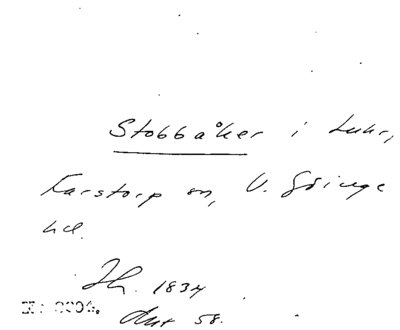 Stobbåker i Luhr,
Farstorp sn, V. Göinge
hd.
1834
Akt 58.